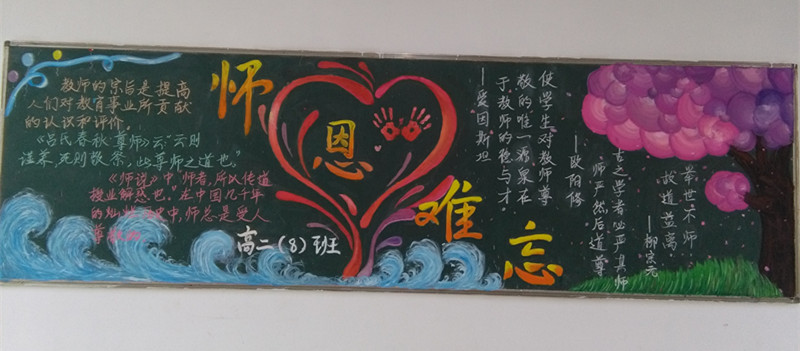 教师的宗旨是提高
人们对教育事业所贡献
的认识和评价。
《吕氏春秋·尊师》云“云则
谨养,死则敬祭,此尊师之道也。”
《师说》中,师者,所以传道
授业解惑也。”在中国几千年
的 中,师总是受人
尊敬的
师
恩
难
忘
高二(8)班
使学生对教师尊
敬的唯一源泉在
于教师的德与才
——爱因斯坦
古之学者必严其师
师严然后道尊
——欧阳修
举世不师
故道益离
——柳宗元